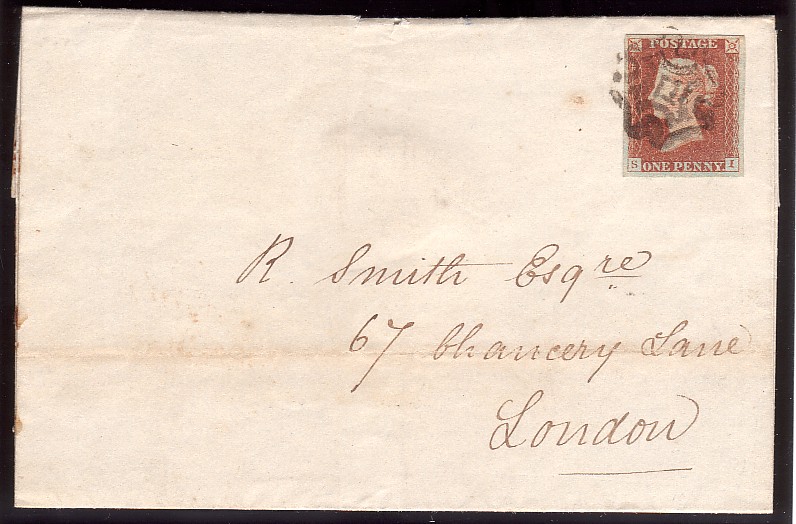 POSTAGE
S ONE PENNY I
R. Smith Esqre
67 Chancery Lane
London